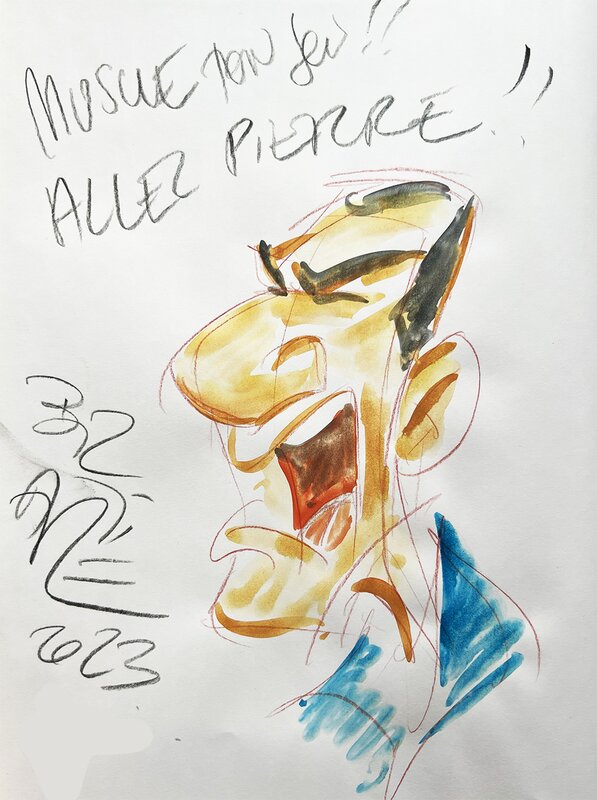 MUSCLE TON JEU !!
ALLEZ PIERRE !!
2023